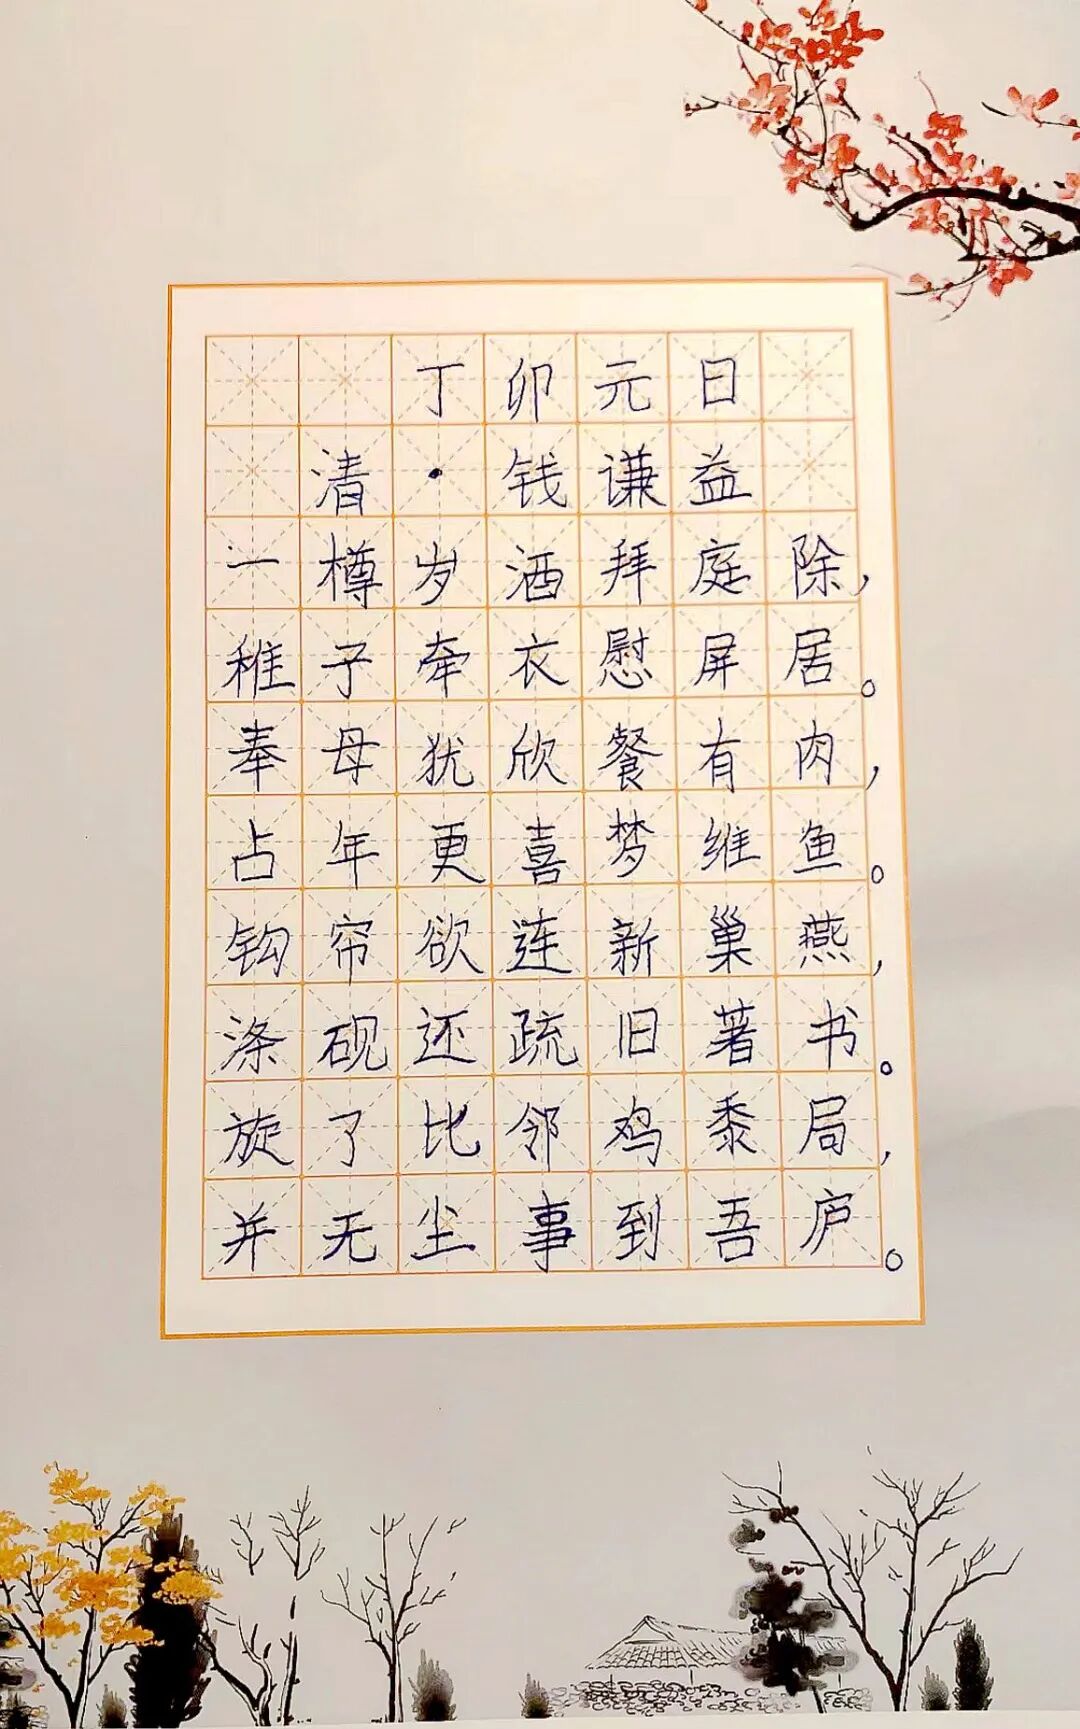 丁卯元日
清·钱谦益
一樽岁酒拜庭除，
稚子牵衣慰屏居。
奉母犹欣餐有肉，
占年更喜梦维鱼。
钩帘欲连新巢燕，
涤砚还疏旧著书。
旋了比邻鸡黍局，
并无尘事到吾庐。